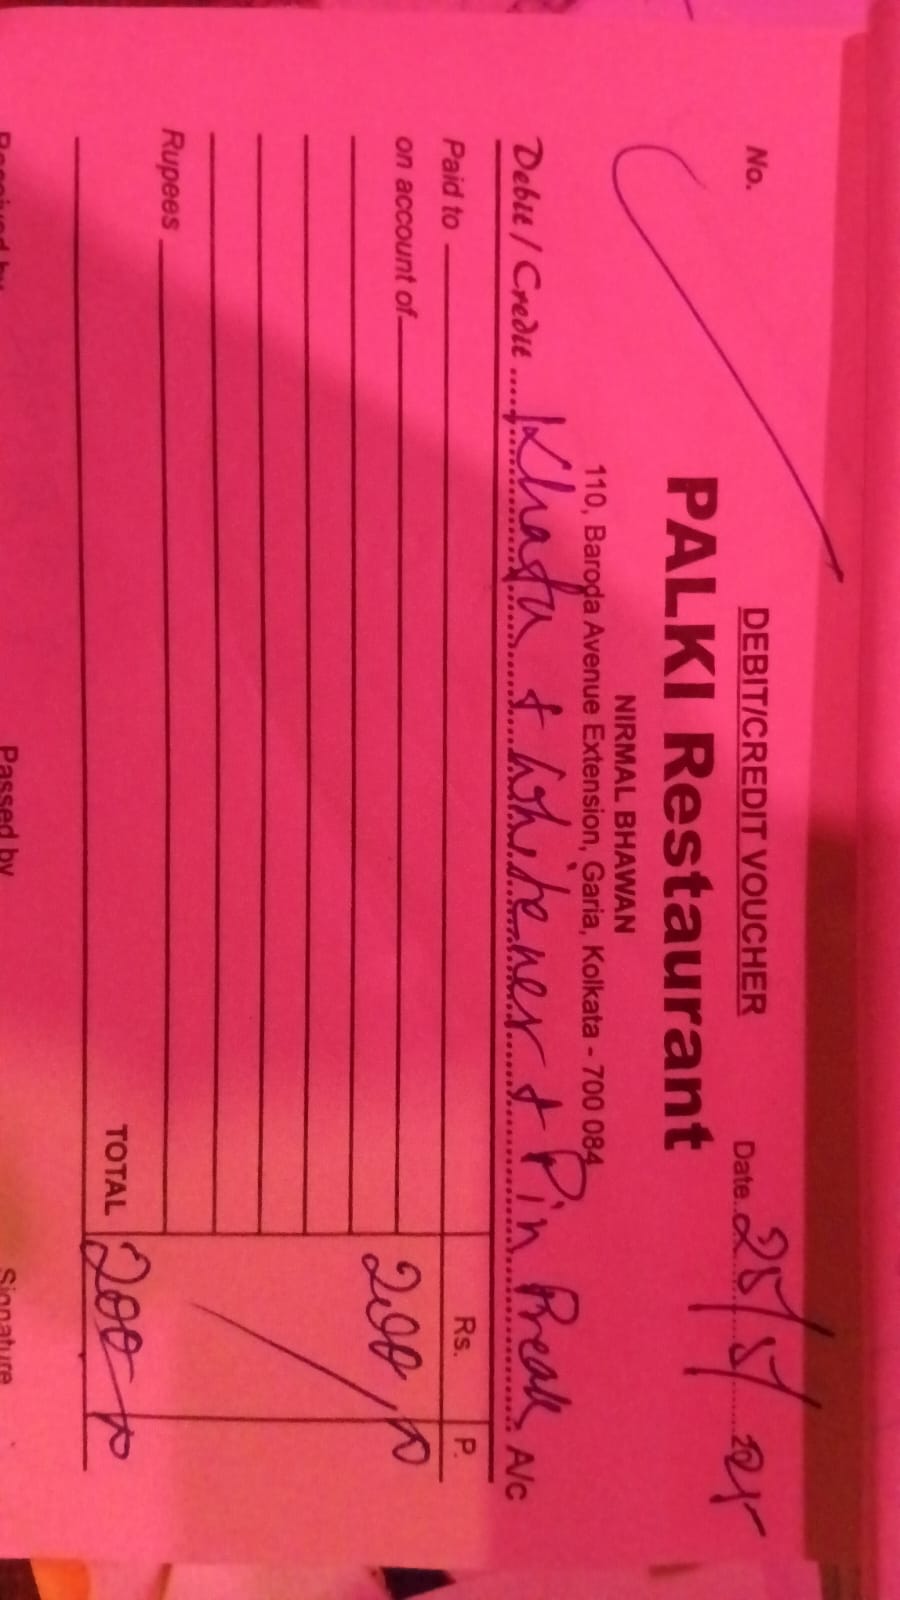 No.
DEBIT/CREDIT VOUCHER
Date 25/5/
PALKI Restaurant
NIRMAL BHAWAN
110, Baroda Avenue Extension, Garia, Kolkata - 700 084
Debit / Credit Khasta + Whitener + Pin A/c
Paid to Rs. P.
on account of 200
Rupees
TOTAL 200
Received by Passed by Signature